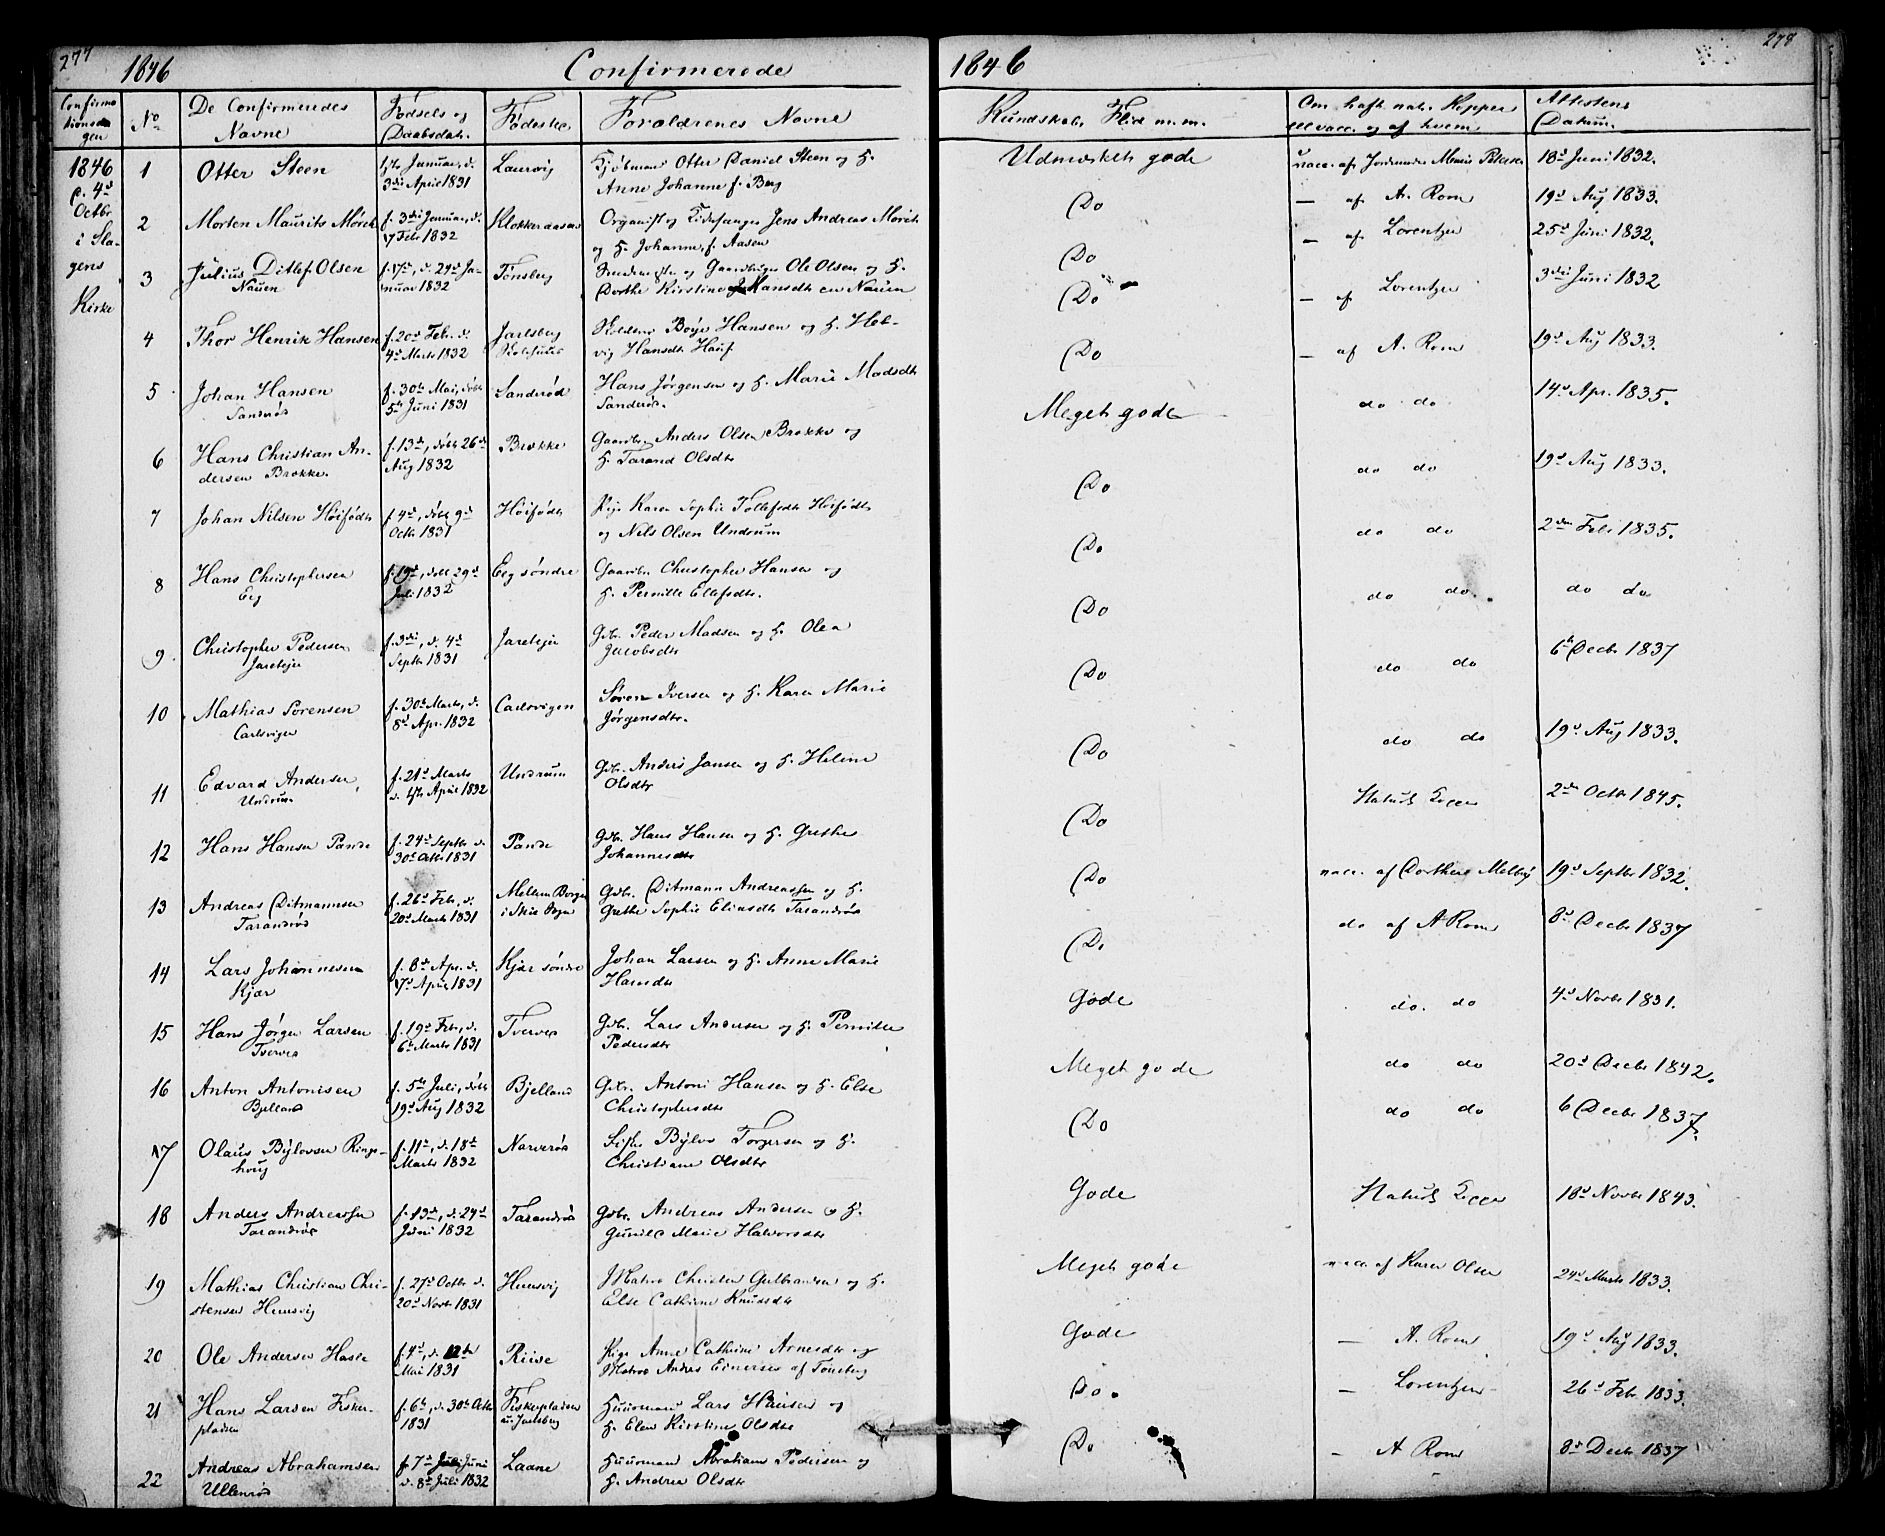 277
1846 Confirmerede
Confirma-
tionsda-
gen
No
De Confirmeredes
Navne
Fødsels og
Daabsdat.
Fødested
Forældrenes Navne
1846
d. 4d
Octbr
i Sla-
gens
Kirke
1 Otter Steen
Januar, d.
3die April 1831
Laurvig
Kjøbmand Otter Daniel Steen og H.
Anne Johanne f. Berg
2 Morten Maurits Mørch
f. 3die Januar, d.
7 Febr 1832
Klokkeraasen
Organist og Kirkesanger Jens Andreas Mørch
og H. Johanne, f. Aasen
3 Julius Ditlef Olsen
Nauen
f. 17d, d. 29d Ja-
nuar 1832
Tønsberg
og Gaardbruger Ole Olsen og H.
Dorthe Kirstine Hansdtr Nauen
4 Thor Henrik Hansen
f. 20d Febr. d.
4d Marts 1832
Jarlsberg
Boye Hansen og H. Hed-
vig Hansdtr
5 Johan Hansen
Sanderød
f. 30te Mai, døbt
5te Juni 1831
Sanderød
Hans Jørgensen og H. Marie Madsdtr
Sanderød.
6 Hans Christian An-
dersen Brække.
f. 13de, døbt 26de
Aug 1832
Brække
Gaardbr. Anders Olsen Brække og
H. Tarand Olsdtr
7 Johan Nilsen Høifødt
f. 4d, døbt 9d
Octb. 1831
Høifødt
Pige Karen Sophie Tollefsdtr Høifødt
og Nils Olsen Undrum
8 Hans Christophersen
Eeg
f. 19d, døbt 29d
Juli 1832
Eeg søndre
Gaardbr. Christopher Hansen og
H. Pernille Ellefsdtr.
9 Christopher Pedersen
Jareteju
f. 3die, d. 4d
Septbr 1831
Jareteju
Gdbr. Peder Madsen og H. Olea
Jacobsdtr
10 Mathias Sørensen
Carlsvigen
f. 30d Marts, d.
8d Apr. 1832
Carlsvigen
Søren Iversen og H. Karen Marie
Jørgensdtr.
11 Edvard Andersen,
Undrum
f. 21d Marts
d. April 1832
Undrum
Gdbr. Anders Jansen og H. Helene
Olsdtr
12 Hans Hansen Pande
f. 24d Septbr d.
30d Octbr 1831
Pande
Gdbr. Hans Hansen og H. Grethe
Johannesdtr
13 Andreas Ditmannsen
Tarandrød
f. 26d Febr, d.
20d Marts 1831
Mellem Borge
i Skie Sogn
Gdbr. Ditmann Andreassen og H.
Grethe Sophie Eliasdtr Tarandrød
14 Lars Johannesen
Kjær
f. 8d Apr. d.
17d April 1831
Kjær søndre
Johan Larsen og H. Anne Marie
Hansdtr
15 Hans Jørgen Larsen
Tverved
f. 19d Febr, d.
6d Marts 1831
Tverved
Gdbr. Lars Andersen og H. Pernille
Pedersdtr
16 Anton Antonisen
Bjelland
f. 5te Juli, døbt
19d Aug 1832
Bjelland
Gdbr. Antoni Hansen og H. Else
Christophersdtr
17 Olaus Bylovsen Rings-
houg
f. 11te, d. 18de
Marts 1832
Narverød
Bylov Torgersen og H.
Christiane Olsdtr
18 Anders Andreassen
Tarandrød
f. 13de, d. 24de
Juni 1832
Tarandrød
Gdbr. Andreas Andersen og H.
Gunild Marie Halvorsdtr
19 Mathias Christian Chri-
stensen Hemsvig
f. 27d Octbr d.
20d Novb 1831
Hemsvig
Matros Christen Gulbrandsen og H.
Else Cathrine Knudsdtr
20 Ole Andersen Hasle
f. 4d, d. 12te
Mai 1831
Riise
Pige Anne Cathrine Arnesdtr og
Matros Andreas Einersen af Tønsberg
21 Hans Larsen Fisker-
pladsen
f. 6te, d. 30te Octbr
1831
Fiskerpladsen
u. Jarlsberg
Huusmand Lars Hansen og
H. Elen Kirstine Olsdtr
22 Andreas Abrahamsen
Ullenrød
f. 7d Juni
d. 8d Juli 1832
Laane
Huusmand Abraham Pedersen og
H. Andrea Olsdtr
1846
278
Kundskab, Flid m.m.
Om havt nat. Kopper
ell vacc. og af hvem
Attestens
Datum.
Udmærket gode vacc. af Jordemoder Marie Petersen 18d Juni 1832.
Do — af A. Rom 19d Aug 1833.
Do — af Lorentzen 25d Juni 1832.
Do — af Lorentzen 3die Juni 1832
Do — af A. Rom 19d Aug 1833.
Meget gode do do 14d Apr. 1835.
Do do do 19d Aug 1833.
Do do do 2den Febr 1835.
Do do do do do
Do do do 6te Decbr 1837
Do do do 19d Aug 1833.
Do Naturl. Kopper 2den Octb 1845.
Do vacc. af Dorthea Melbÿ 19d Septbr 1832.
Do do af A. Rom 8d Decbr 1837
Gode do. do 4d Novbr 1831.
Meget gode do do 20d Decbr 1842.
Do do do 6 Decbr 1837.
Gode Naturl. Kopper 18d Novbr 1843.
Meget gode vacc. af Karen Olsen 24d Marts 1833.
Gode — A. Rom 19d Aug 1833.
Do. — Lorentzen 26d Febr 1833.
Do — A Rom 8d Decbr 1837